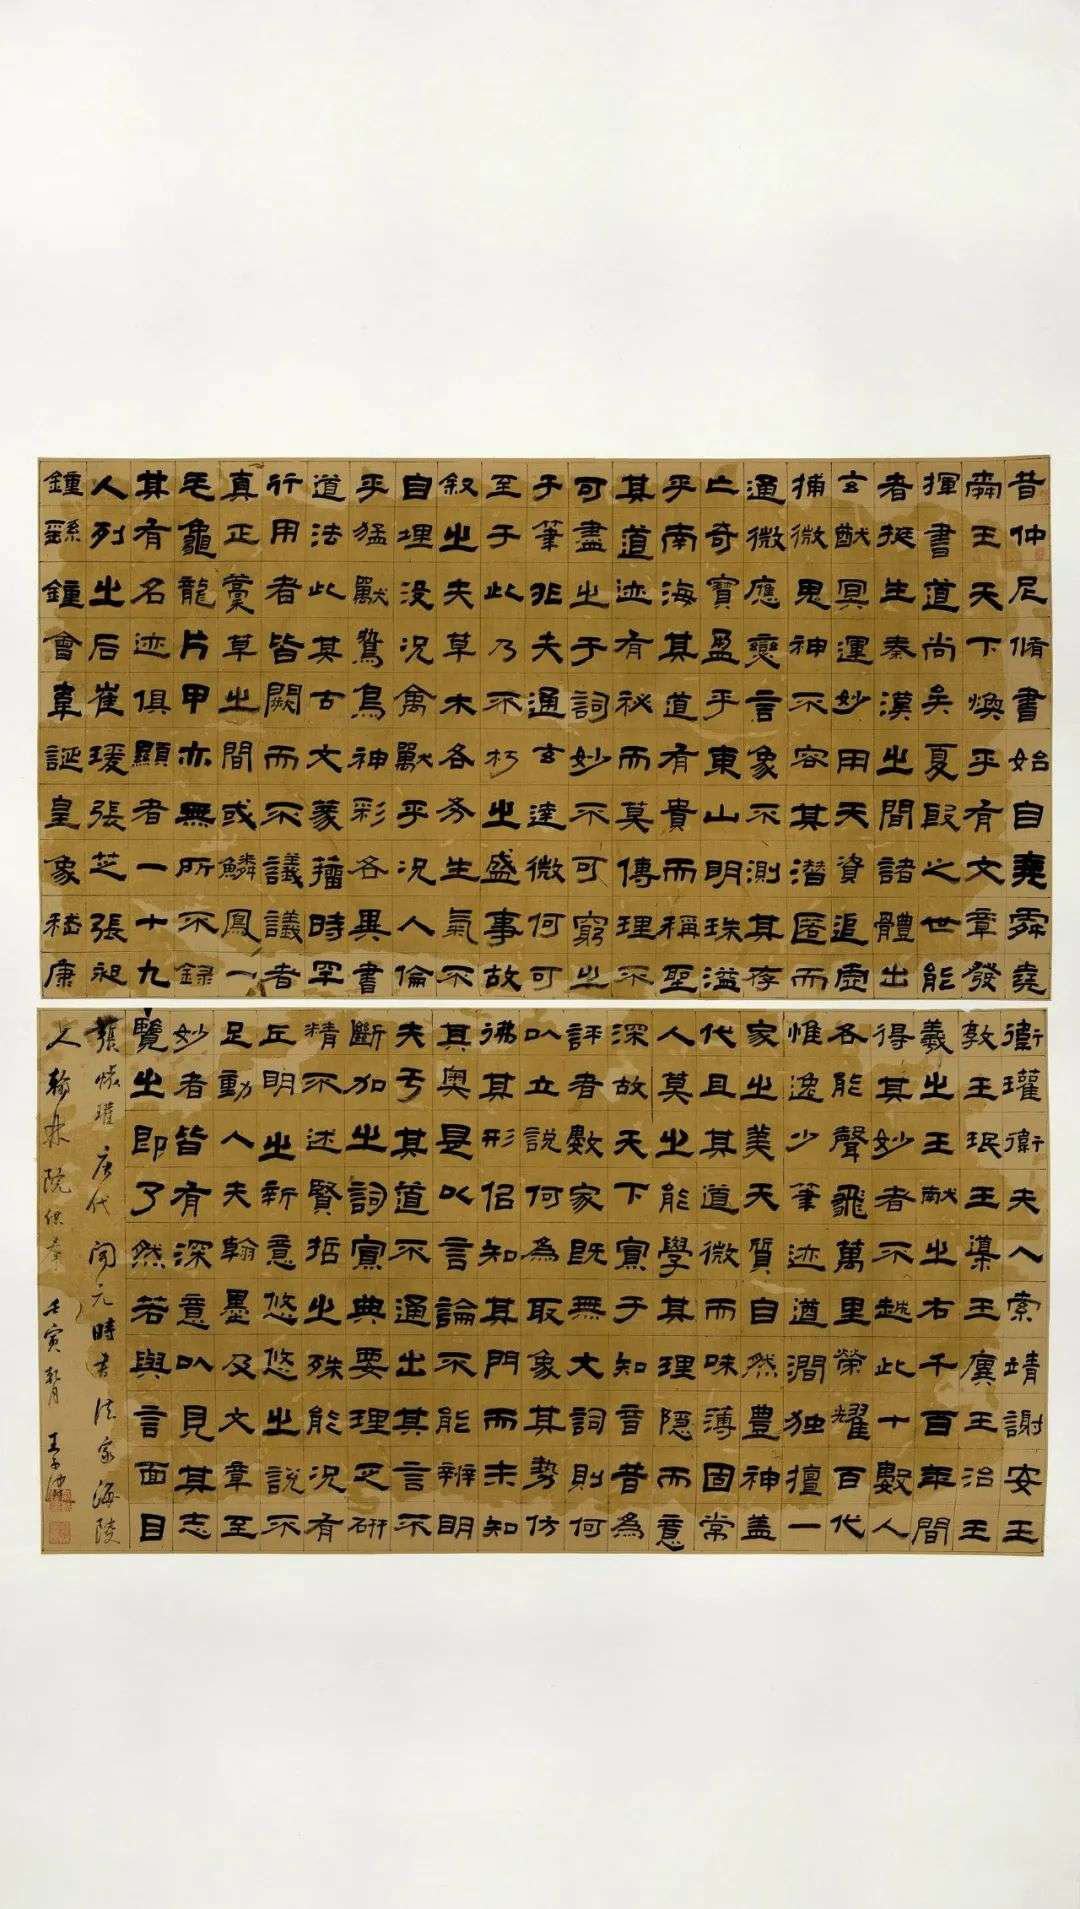 昔仲尼脩書始自堯舜堯
舜王天下煥乎有文章發
揮書道尚矣夏殷之世能
者挺生秦漢之間諸體出
玄猷冥運妙用天資追虚
捕微鬼神不容其潛匿而
通微應變言象不測其存
亡奇寶盈乎東山明珠溢
乎南海其道有貴而稱聖
其道迹有祕而莫傳理不
可盡之于詞妙不可窮之
于筆非夫通玄達微何可
至于此乃不朽之盛事故
叙之夫草木各务生氣不
自埋没况禽獸乎况人倫
乎猛獸鷙鳥神彩各異書
道法此其古文篆籀時罕
行用者皆闕而不議議者
真正藁草之間或鱗鳳一
毛龜龍片甲亦無所不録
其有名迹俱顯者一十九
人列之后崔瑗張芝張昶
鍾繇鍾會韋誕皇象嵇康
衛瓘衛夫人索靖謝安王
敦王珉王導王廙王洽王
羲之王獻之右千百年間
得其妙者不越此十數人
各能聲飛萬里榮耀百代
惟逸少筆迹遒潤独擅一
家之美天質自然豐神蓋
代且其道微而味薄固常
人莫之能學其理隱而意
深故天下寡于知音昔為
評者數家既無大詞則何
以立説何為取象其勢仿
彿其形似知其門而未知
其奥是以言論不能辨明
夫于其道不通出其言不
斷加之詞寡典要理乏研
精不述賢哲之殊能况有
丘明之新意悠悠之説不
足動人夫翰墨及文章至
妙者皆有深意以見其志
覽之即了然若與言面目
張懷瓘 唐代開元時書法家海陵
人 翰林院供奉 壬寅 月 王子